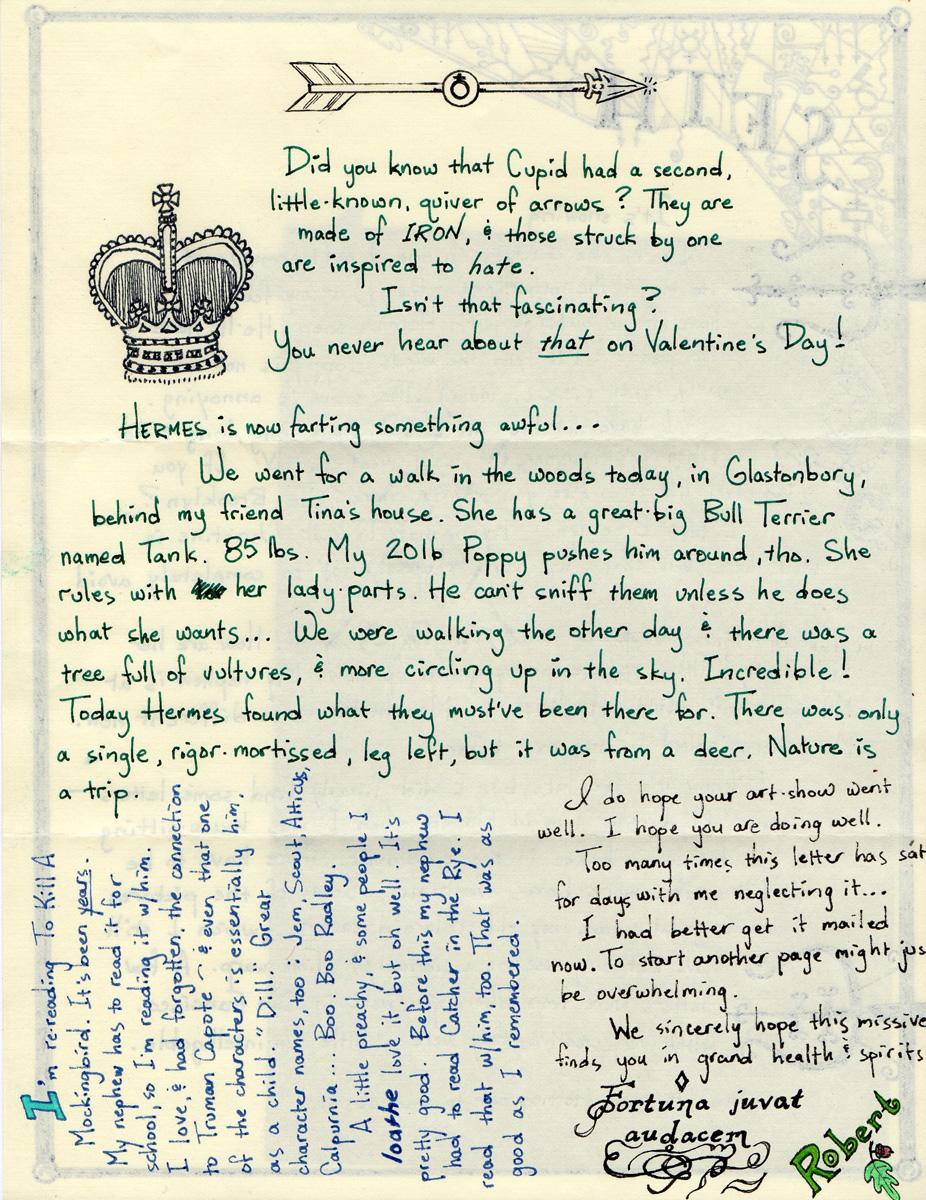 Did you know that Cupid had a second,
little-known, quiver of arrows? They are
made of IRON, & those struck by one
are inspired to hate.
Isn't that fascinating?
You never hear about that on Valentine's Day!
HERMES is now farting something awful...
We went for a walk in the woods today, in Glastonbory,
behind my friend Tina's house. She has a great-big Bull Terrier
named Tank. 85 lbs. My 20lb Poppy pushes him around, tho. She
rules with her lady-parts. He can't sniff them unless he does
what she wants... We were walking the other day & there was a
tree full of vultures, & more circling up in the sky. Incredible!
Today Hermes found what they must've been there for. There was only
a single, rigor-mortissed, leg left, but it was from a deer. Nature is
a trip.
I'm reading To Kill A
Mockingbird. It's been years.
My nephew has to read it for
school, so I'm reading it w/him.
I love, & had forgotten, the connection
to Truman Capote ~ & even that one
of the characters is essentially him.
as a child. "Dill." Great
character names, too: Jem, Scout, Atticus,
Calpurnia... Boo. Boo Radley.
A little preachy, & some people I
loathe love it, but oh well. It's
pretty good. Before this my nephew
had to read Catcher in the Rye. I
read that w/him, too. That was as
good as I remembered.
I do hope your art-show went
well. I hope you are doing well.
Too many times this letter has sat
for days with me neglecting it...
I had better get it mailed
now. To start another page might jus
be overwhelming.
We sincerely hope this missive
finds you in grand health & spirits
Fortuna juvat
audacem
Robert